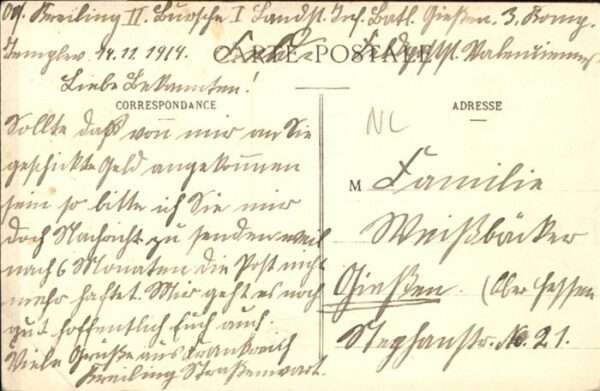 Kreiling II. Bursche I Landst. Inf. Batl. Gießen. 3. Komp.
Templev 14.11.1914.
CARTE POSTALE
Feldpost. Valenciennes
Liebe Bekannten!
CORRESPONDANCE
Sollte daß von mir an Sie
geschickte Geld angekommen
sein so bitte ich Sie mir
doch Nachricht zu senden weil
nach 6 Monaten die Post nicht
mehr haftet. Mir geht es noch
gut hoffentlich Euch auch.
Viele Grüße aus Frankreich
Kreiling Straßenwart.
ADRESSE
NL
M Familie
Weißbäcker
Gießen. (Ober Hessen
Stephanstr. No. 21.